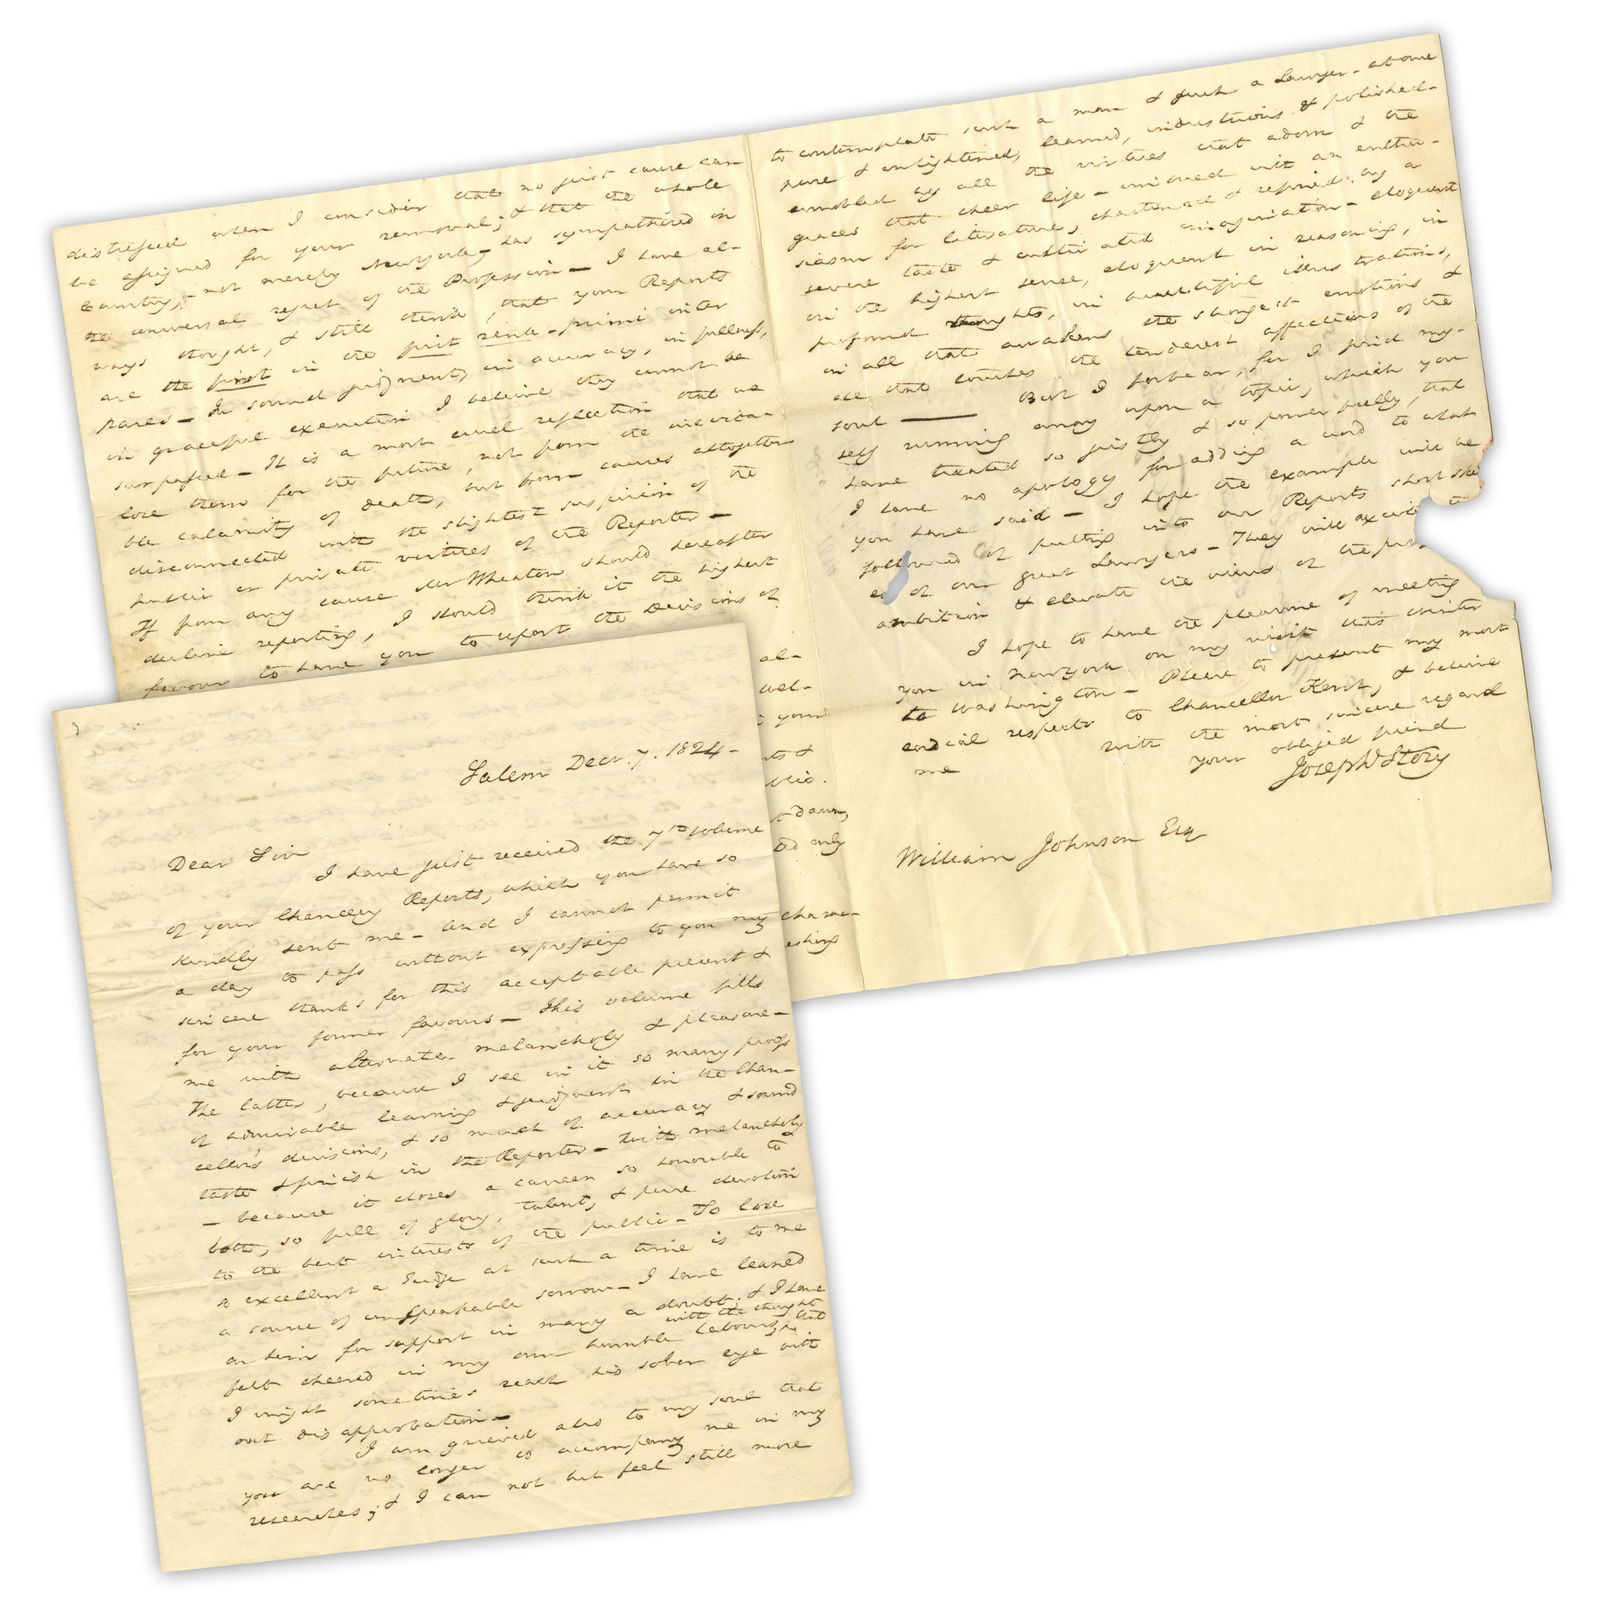 Salem Decr. 7. 1824 -
Dear Sir
I have just received the 7th volume
of your Chancery Reports, which you have so
kindly sent me - and I cannot permit
a day to pass without expressing to you my
sincere thanks for this acceptable present &
for your former favours - This volume fills
me with alternate melancholy & pleasure -
The latter, because I see in it so many proofs
of admirable learning & judgment in the Chan-
cellor's decisions, & so much of accuracy & sound
taste & finish in the Reporter - with melancholy
- because it closes a career so honorable to
both, so full of glory, talent, & pure devotion
to the best interests of the public - To lose
so excellent a Judge at such a time is to me
a source of unspeakable sorrow - I have leaned
on him for support in many a doubt; & I have
felt cheered in my own humble labours, with the thought that
I might sometimes reach his sober eye with
out disapprobation -
I am grieved also to my soul that
you are no longer to accompany me in my
researches; & I can not but feel still more
distressed when I consider that no just cause can
be assigned for your removal; & that the whole
Country, - not merely New york - has sympathized in
the universal regret of the Profession - I have al-
ways thought, & still think, that your Reports
are the first in the first rank - primi inter
pares - In sound judgment, in accuracy, in fullness,
in graceful execution I believe they cannot be
surpassed - It is a most cruel reflection that we
lose them for the future, not from the inevita-
ble calamity of death, but from causes altogether
disconnected with the slightest suspicion of the
public or private virtues of the Reporter -
If from any cause Mr Wheaton should hereafter
decline reporting, I should think it the highest
favour to have you to report the Decisions of
al-
val-
your
ts &
blic.
t down,
ed only
charac-
eshing
to contemplate such a man & such a Lawyer - at once
pure & enlightened, learned, industrious & polished -
ennobled by all the virtues that adorn & the
graces that cheer life - imbued with an enthu-
siasm for literature, chastened & refined by a
severe taste & cultivated imagination - eloquent
in the highest sense, eloquent in reasoning, in
profound thoughts, in beautiful illustrations,
in all that awakens the strongest emotions &
all that touches the tenderest affections of the
soul - But I forbear, for I find my-
self running away upon a topic, which you
have treated so justly & so powerfully, that
I have no apology for adding a word to what
you have said - I hope the example will be
followed of putting into our Reports short ske
es of our great Lawyers - They will excite t
ambition & elevate the views of the pro
I hope to have the pleasure of meeting
you in New york on my visit this winter
to Washington - Please to present my most
cordial respects to Chancellor Kent, & believe
me with the most sincere regard
your obliged friend
Joseph Story
William Johnson Esq